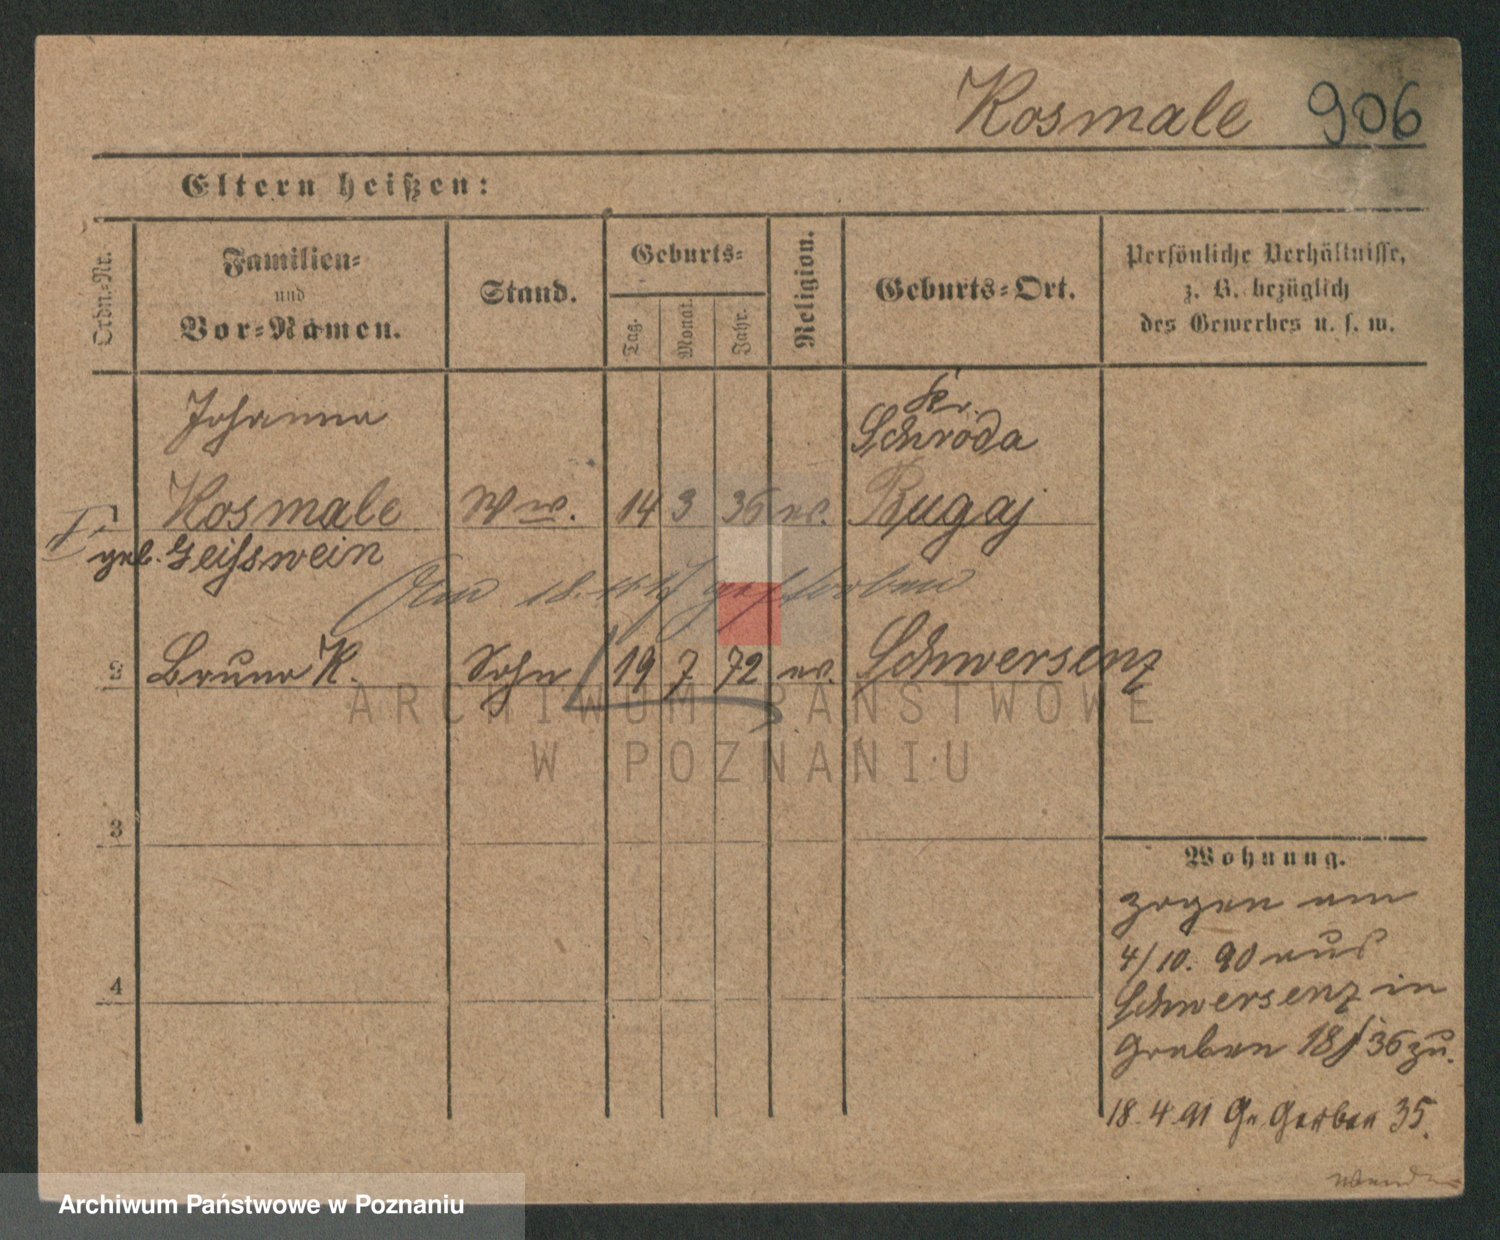 Kosmale 906
Eltern heißen:
Ordn.-Nr.
Familien-
und
Vor-Namen.
Stand.
Geburts-
Tag.
Monat.
Jahr.
Religion.
Geburts-Ort.
Persönliche Verhältnisse,
z. B. bezüglich
des Gewerbes u. s. w.
Johanna
Kr.
Schroda
1 Kosmale Ww. 14 3 36 ev. Rugaj
geb. Geisswein
Am 18. gestorben
2 Bruno K. Sohn 19 7 72 ev. Schwersenz
3
4
Wohnung.
zogen am
4/10. 90 aus
Schwersenz in
Graben 18/36 zu.
18. 4. 91 Gr. Gerber 35.
ARCHIWUM PAŃSTWOWE
W POZNANIU
Archiwum Państwowe w Poznaniu